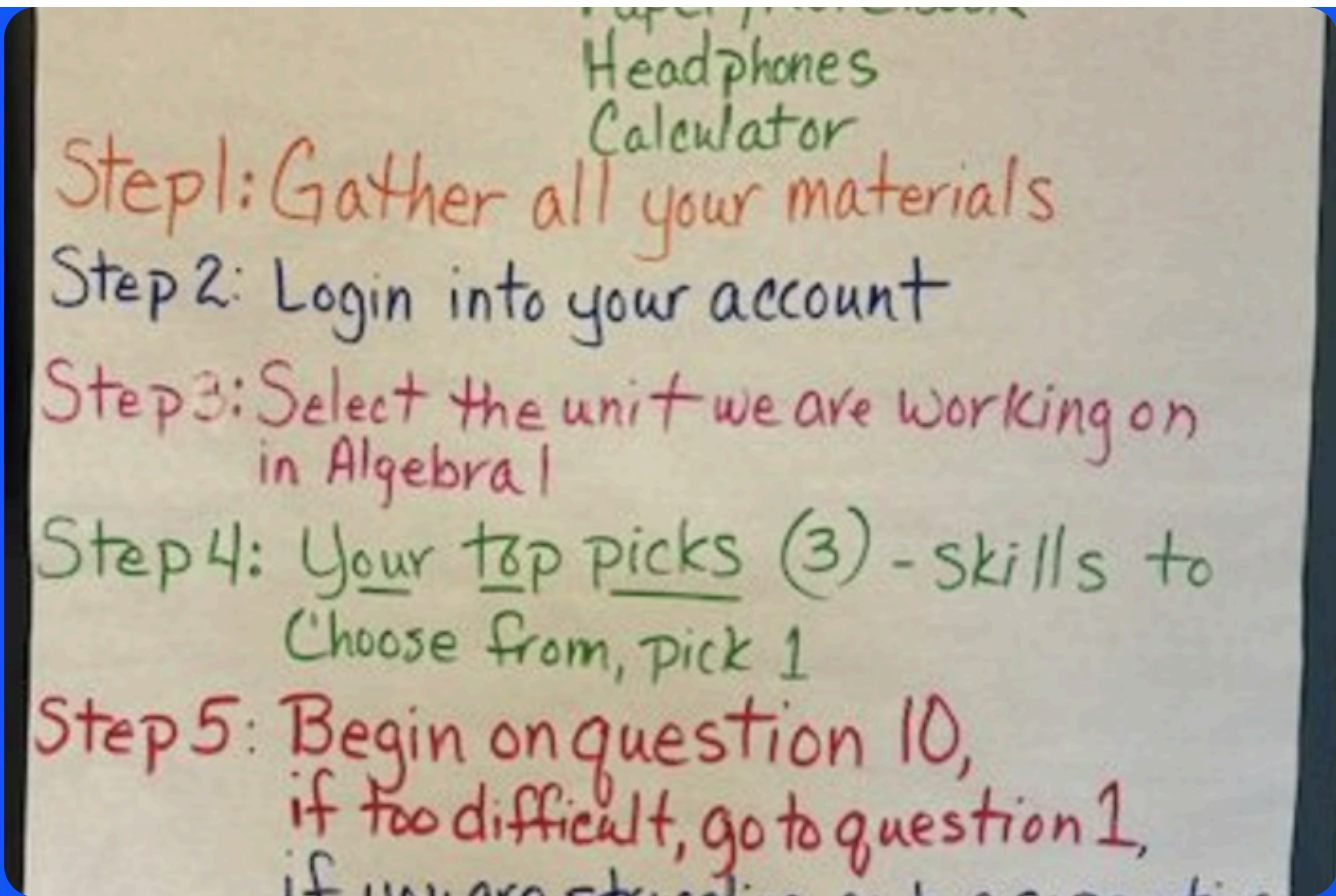 Headphones
Calculator
Step1: Gather all your materials
Step 2: Login into your account
Step3: Select the unit we are working on
in Algebra 1
Step 4: Your top picks (3) - skills to
Choose from, pick 1
Step 5: Begin on question 10,
if too difficult, go to question 1,
if you are